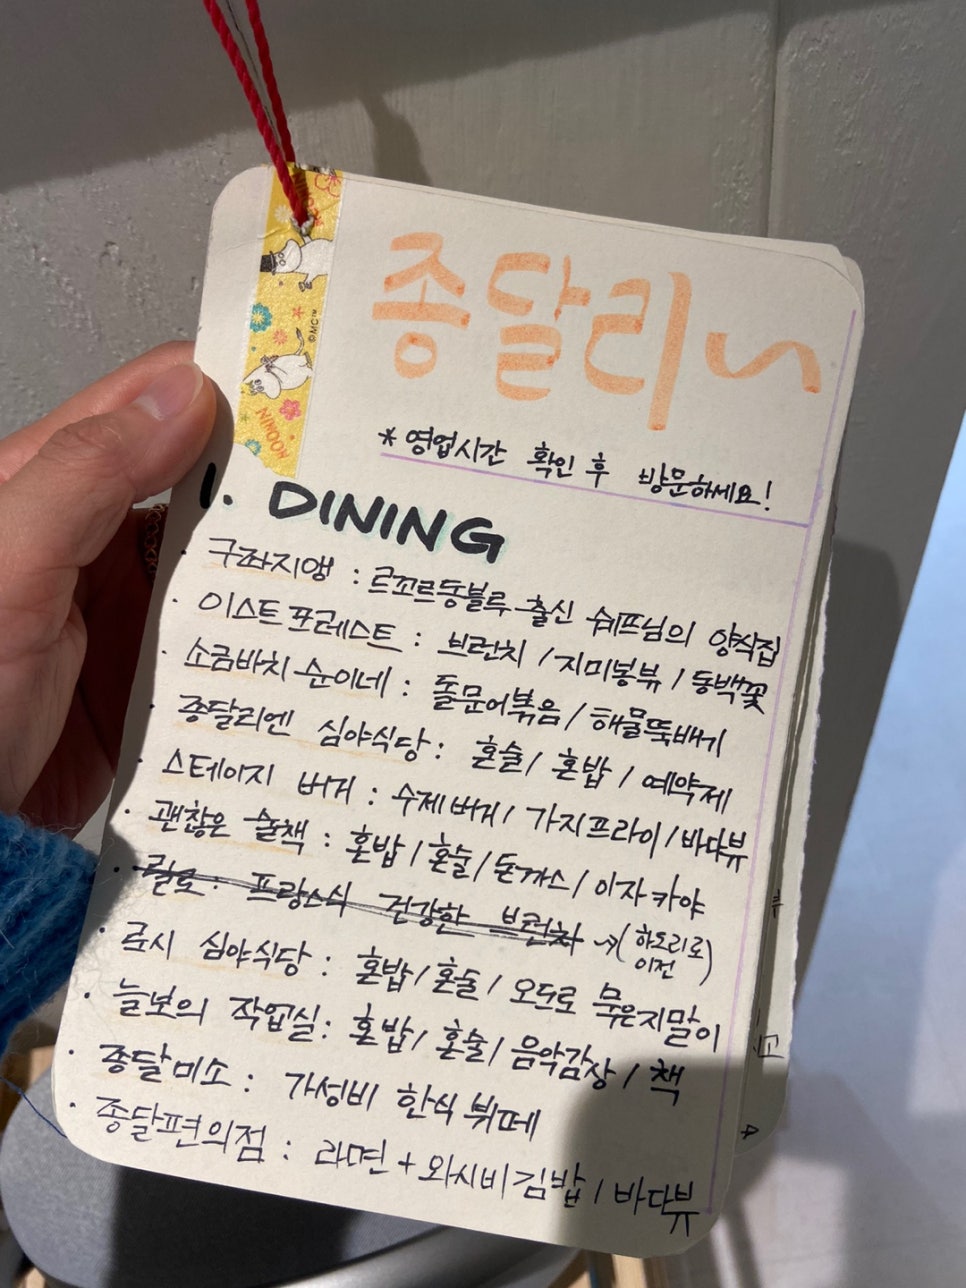 종달리~
* 영업시간 확인 후 방문하세요!
1. DINING
· 구좌지앵 : 르꼬르동블루 출신 쉐프님의 양식집
· 이스트포레스트 : 브런치 / 지미봉뷰 / 동백꽃
· 소금바치 순이네 : 돌문어볶음 / 해물뚝배기
· 종달리엔 심야식당 : 혼술 / 혼밥 / 예약제
· 스테이지 버거 : 수제버거 / 가지프라이 / 바다뷰
· 괜찮은 술책 : 혼밥 / 혼술 / 돈까스 / 이자카야
· 릴로 : 프랑스식 건강한 브런치 → (하도리로
이전)
· 곰시 심야식당 : 혼밥 / 혼술 / 오도로 묵은지말이
· 늘보의 작업실 : 혼밥 / 혼술 / 음악감상 / 책
· 종달미소 : 가성비 한식 뷔페
· 종달편의점 : 라면 + 와사비김밥 / 바다뷰
MOOMIN
©MC™